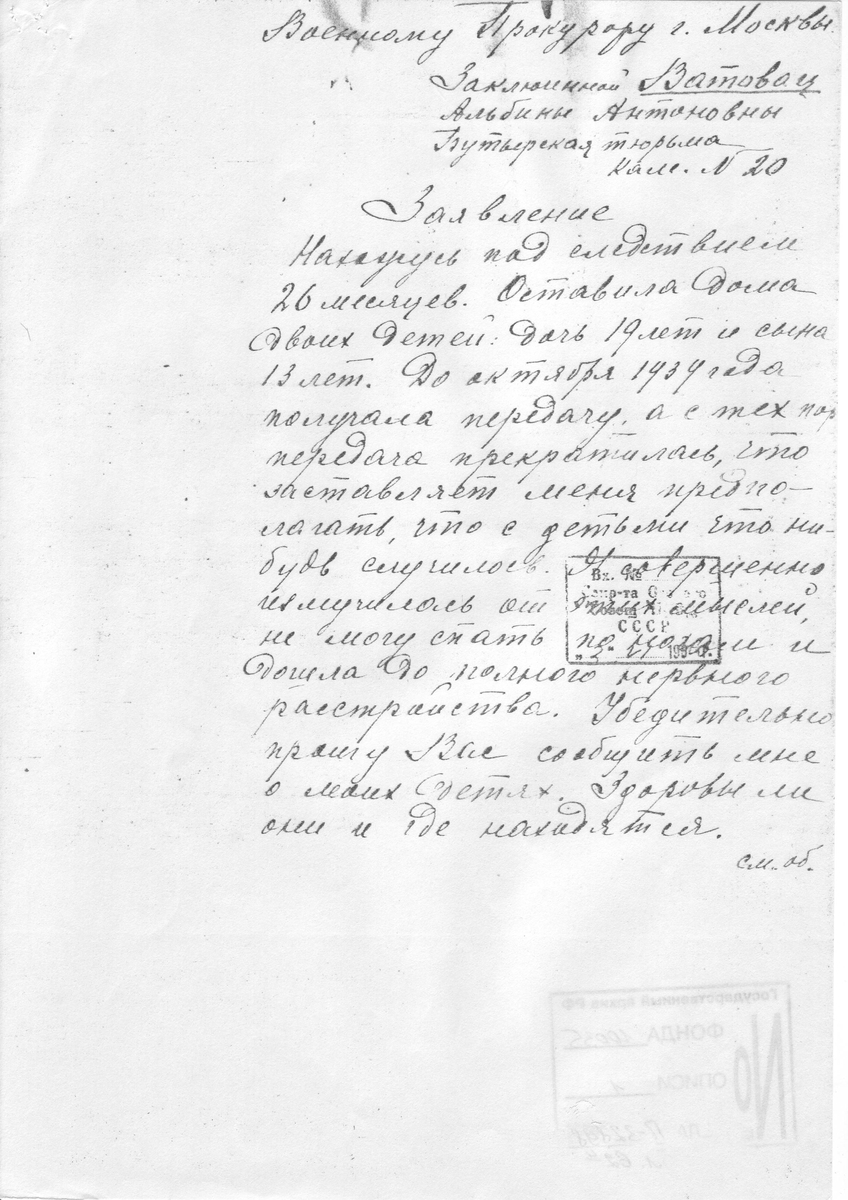 Военному Прокурору г. Москвы
Заключенной Ватовац
Альбины Антоновны
Бутырская тюрьма
Кам. N 20
Заявление
Нахожусь под следствием
26 месяцев. Оставила дома
двоих детей: дочь 19 лет и сына
13 лет. До октября 1939 года
получала передачу, а с тех пор
передача прекратилась, что
заставляет меня предпо-
лагать, что с детьми что ни-
будь случилось. Я совершенно
измучилось от этих мыслей,
не могу спать по ночам и
дошла до полного нервного
расстройства. Убедительно
прошу Вас сообщить мне
о моих детях. Здоровы ли
они и где находятся.
см. об.
Вх. №
СССР
Государственный архив РФ
№ ФОНДА 10035
ОПИСИ 1